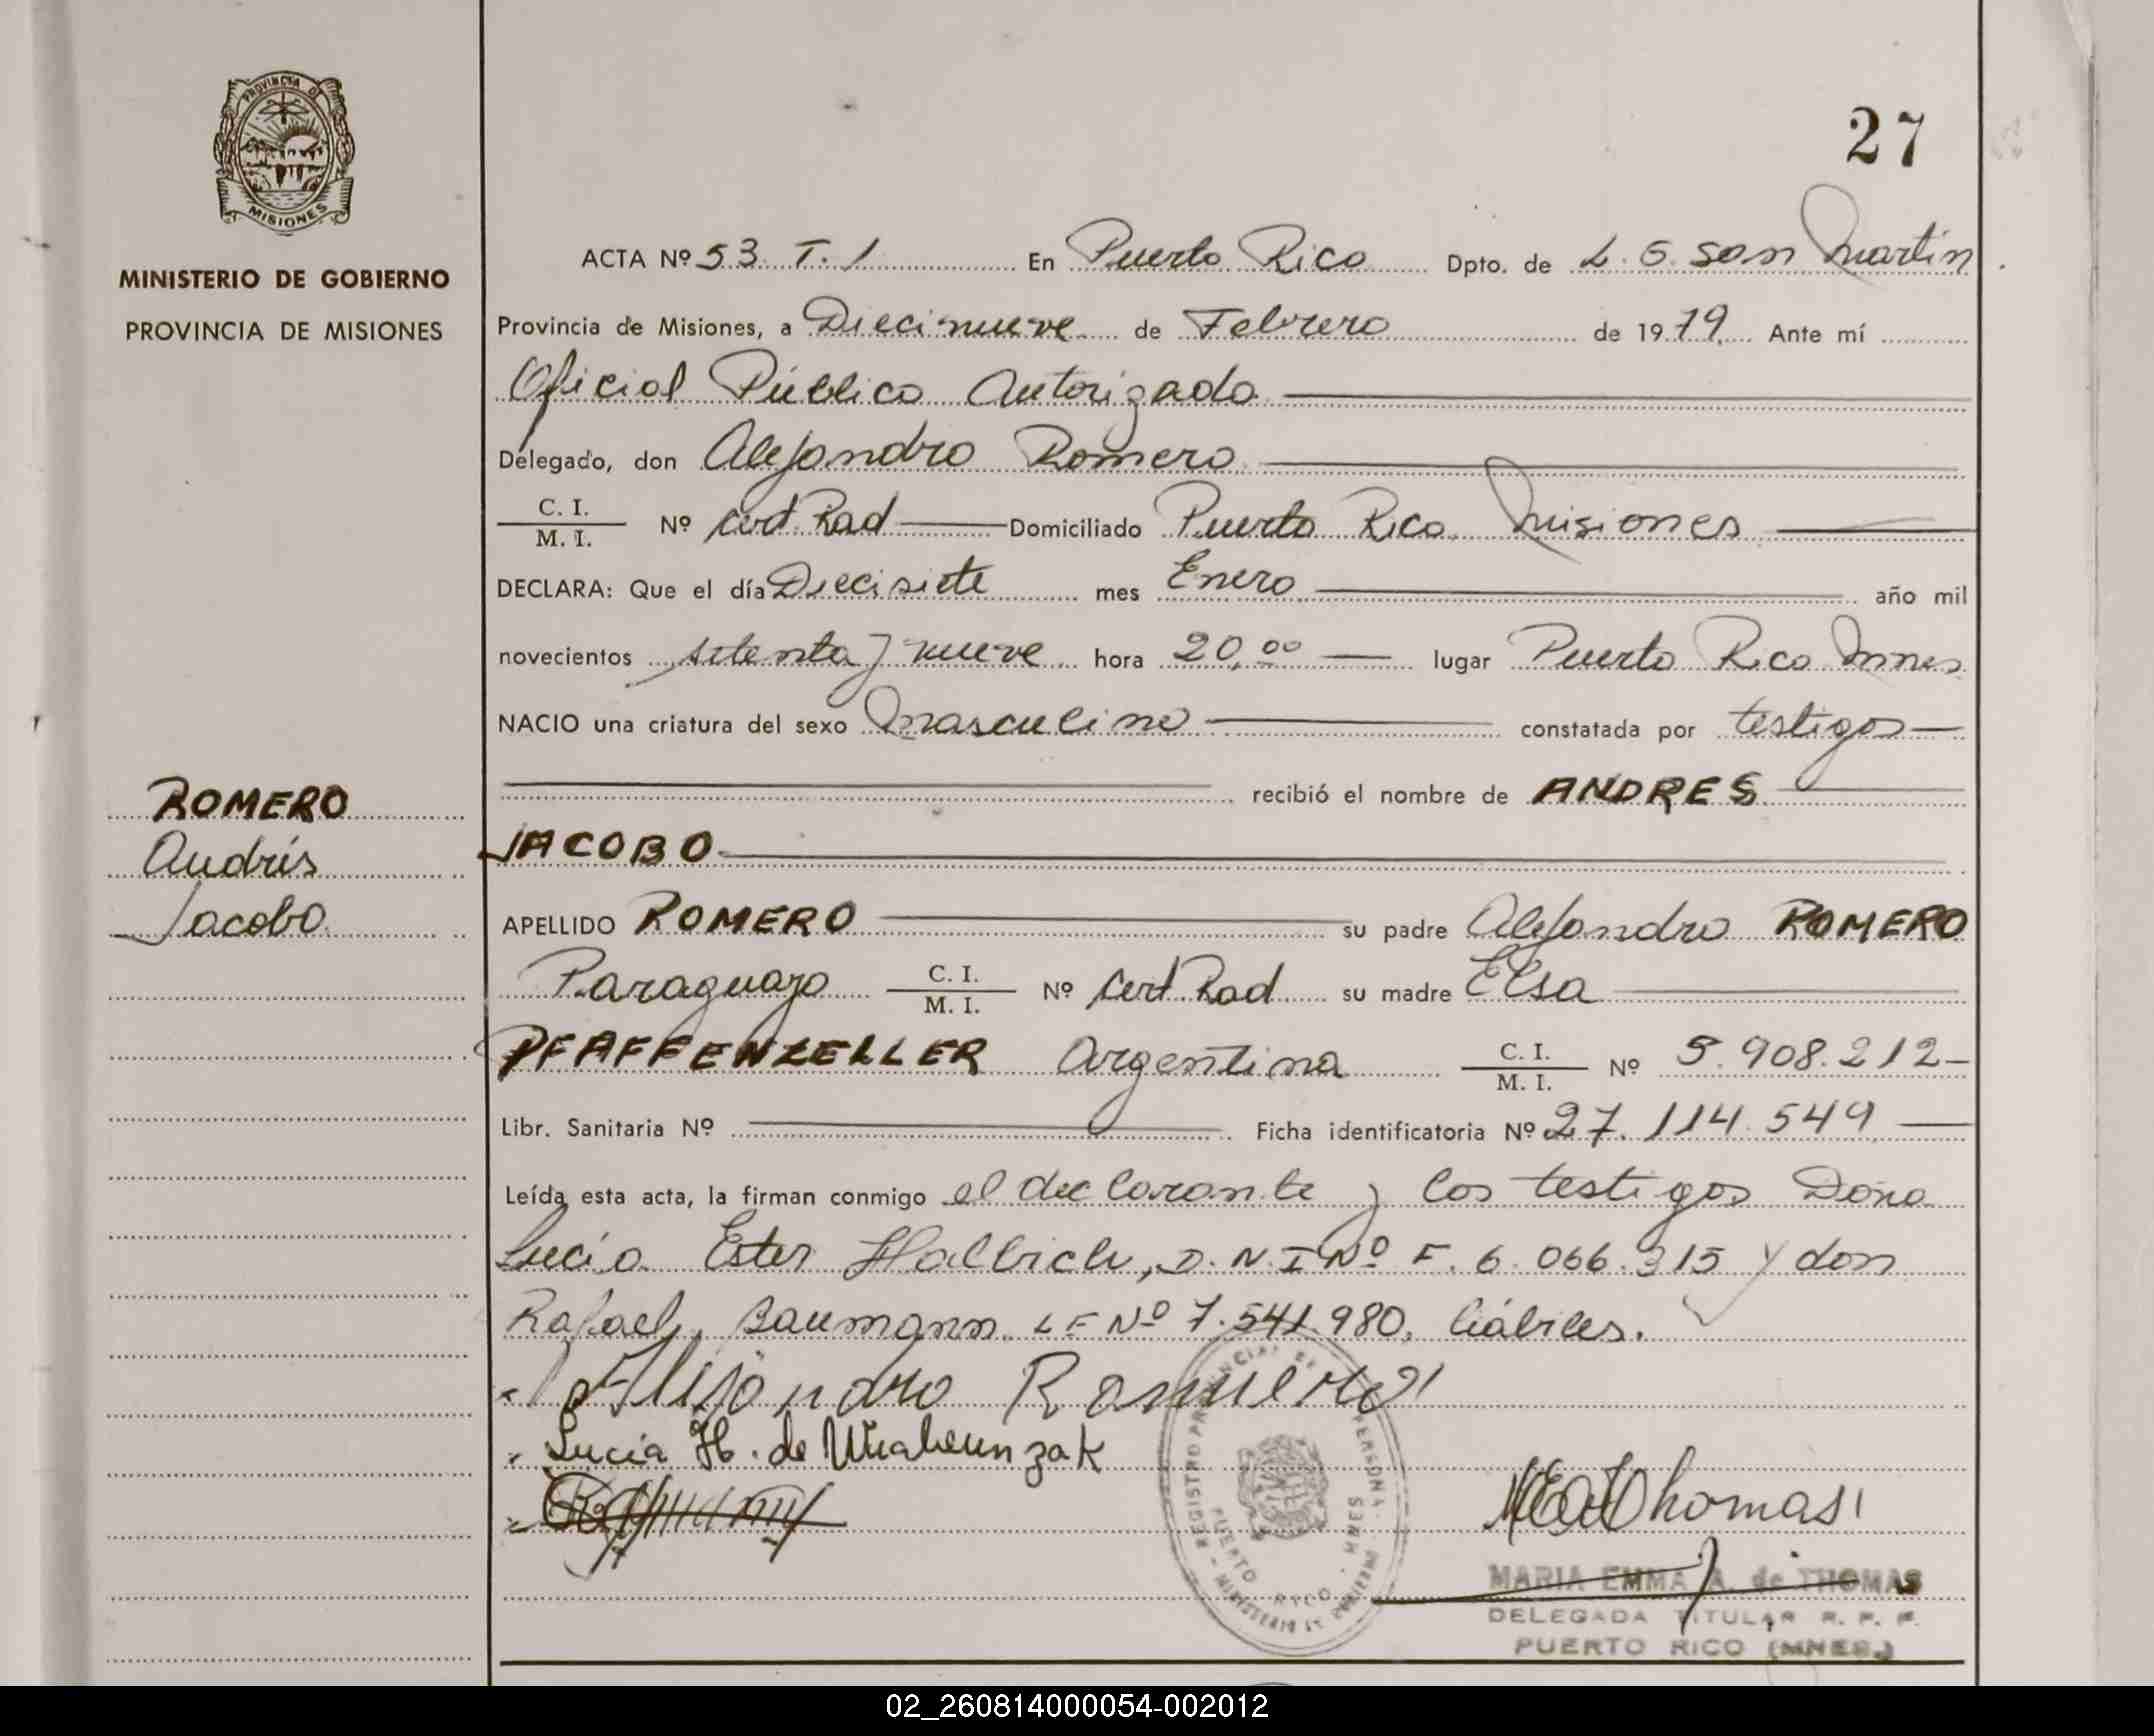 27
PROVINCIA D
MISIONES
MINISTERIO DE GOBIERNO
PROVINCIA DE MISIONES
ACTA Nº 53 T. 1 En Puerto Rico Dpto. de L. G. San Martin
Provincia de Misiones, a Diecinueve de Febrero de 1979. Ante mí
Oficial Público Autorizado
Delegado, don Alejandro Romero
C. I.
M. I. Nº Cert Rad Domiciliado Puerto Rico Misiones
DECLARA: Que el día Diecisiete mes Enero año mil
novecientos setenta y nueve hora 20,00 lugar Puerto Rico Mnes
NACIO una criatura del sexo Masculino constatada por testigos
recibió el nombre de ANDRES
JACOBO
ROMERO
Andrés
Jacobo
APELLIDO ROMERO su padre Alejandro ROMERO
Paraguayo C. I.
M. I. Nº Cert Rad su madre Elsa
PFAFFENZELLER Argentina C. I.
M. I. Nº 5.908.212-
Libr. Sanitaria Nº Ficha identificatoria Nº 27.114.549
Leída esta acta, la firman conmigo el declarante y los testigos Doña
Lucía Ester Hallich, D.N.I Nº F. 6.066.315 y don
Rafael Baumann LE Nº 7.541.980, hábiles.
Alejandro Romero
Lucia H. de
Thomas
MARIA EMMA A. de THOMAS
DELEGADA TITULAR R. P. P.
PUERTO RICO (MNES.)
02_260814000054-002012